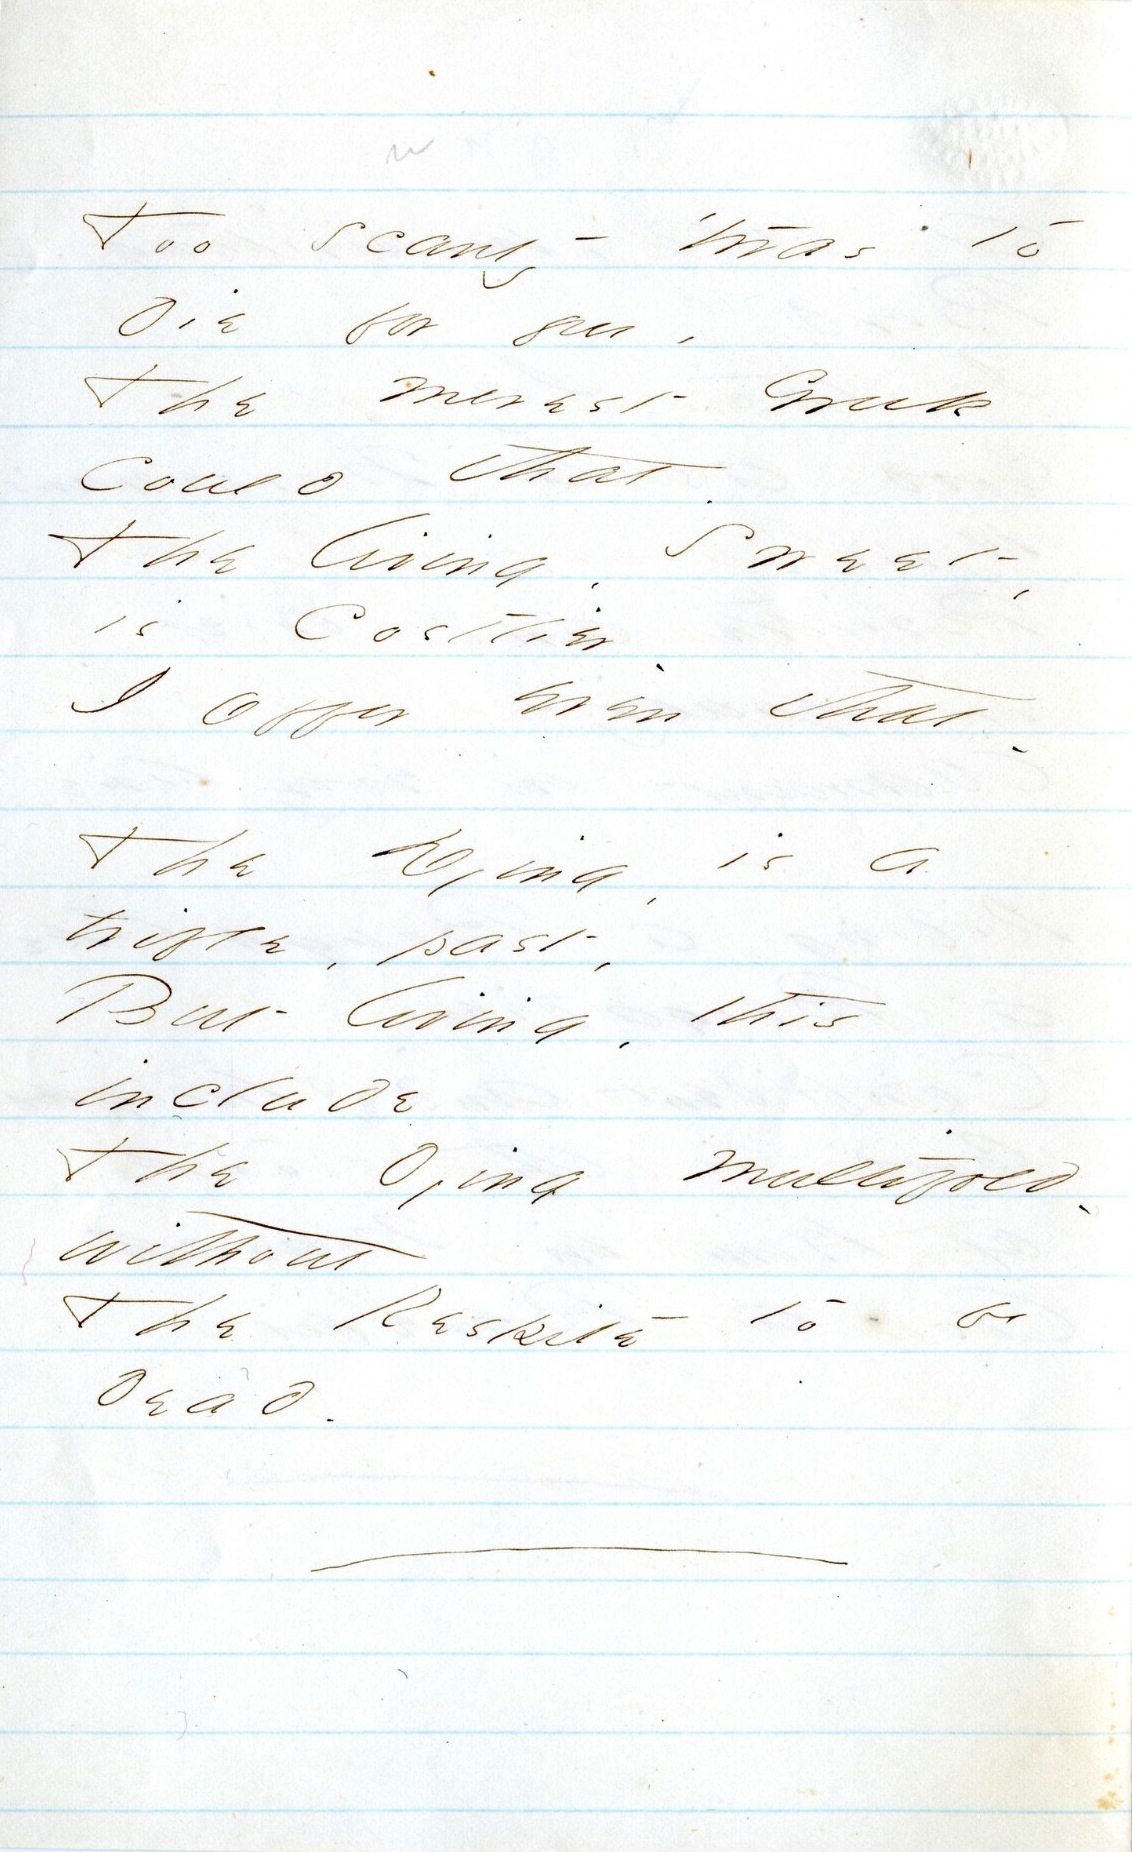 Too scanty 'twas to
die for you,
The merest Greek
could that.
The living, Sweet,
is costlier.
I offer even that.
The Dying, is a
trifle, past,
But living, this
include
The dying multifold.
without
The Respite to be
dead.